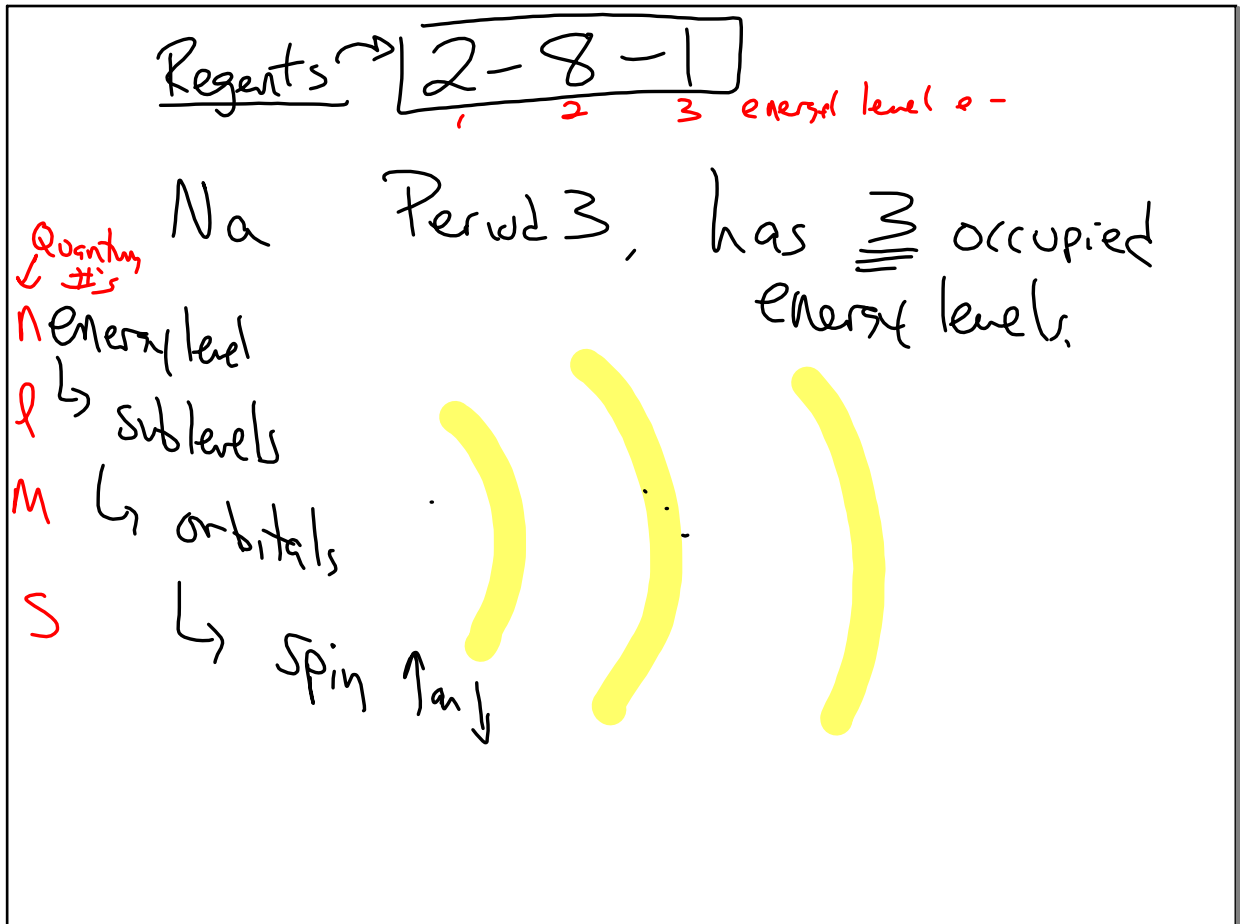 Regents 2-8-1
1 2 3 energy level e-
Na Period 3, has 3 occupied
energy levels.
Quantum
#'s
n energy level
l sublevels
m orbitals
s spin ↑ or ↓